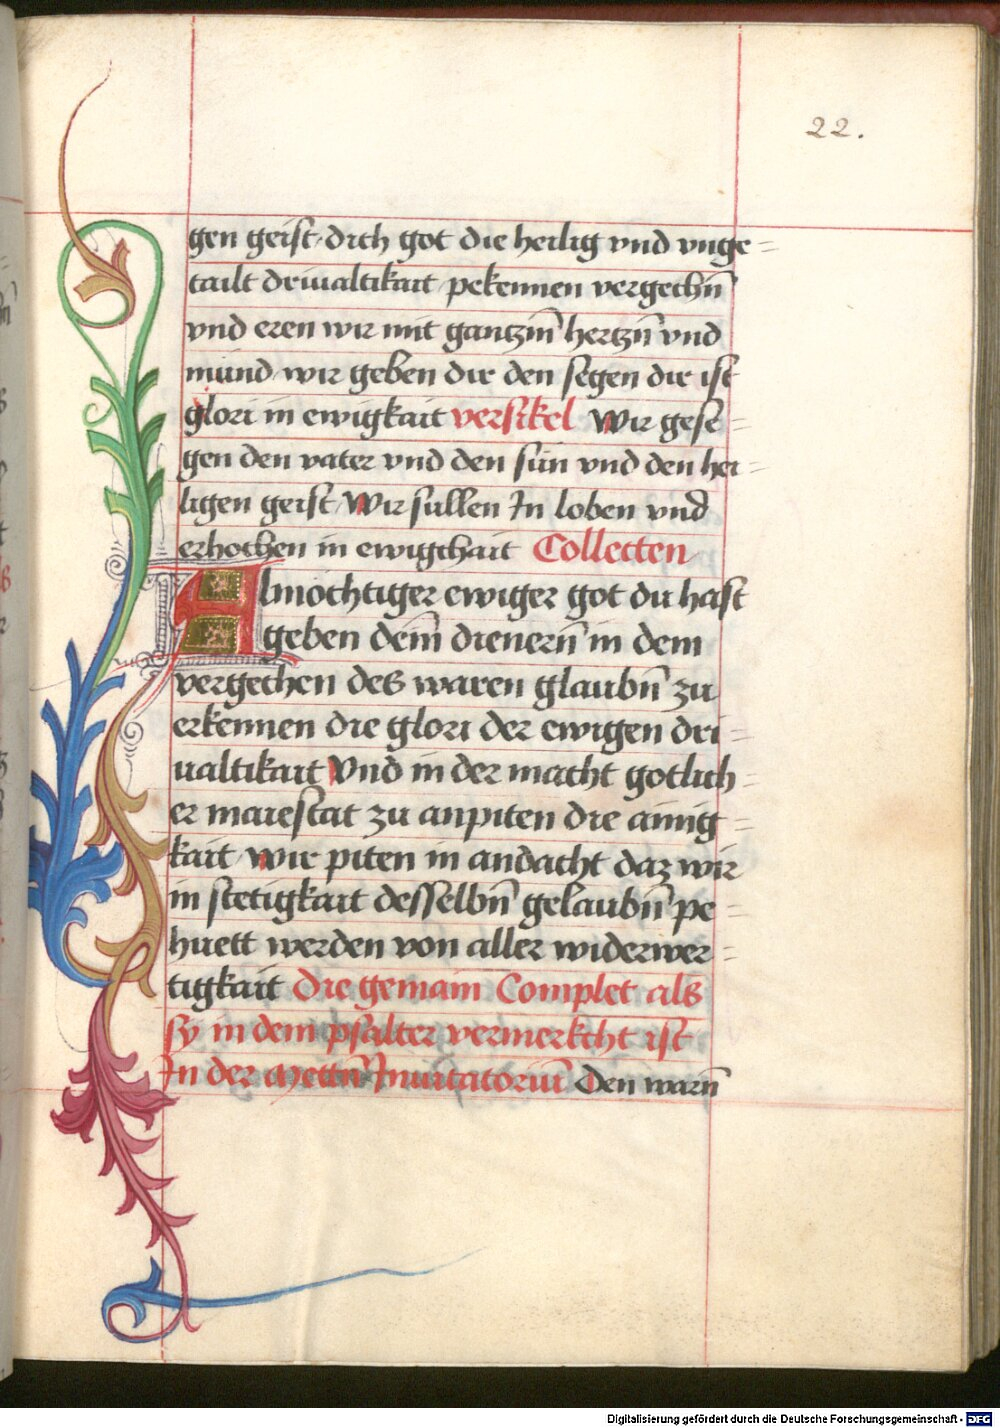 22.
gen geist, dich got die heilig vnd vnge=
tailt driualtikait, pekennen vergechn̄
vnd eren wir mit gantzm̄ hertzn̄ vnd
mund wir geben dir den segen dir ist
glori in ewigkait versikel Wir gese=
gen den vater vnd den sun vnd den hei=
ligen geist, Wir sullen In loben vnd
erhochen in ewigchait Collecten
Almöchtiger ewiger got du hast
geben deim̄ dienern̄ in dem
vergechen des waren glaubn̄ zu
erkennen die glori der ewigen dri=
ualtikait Vnd in der macht gotlich=
er maiestat zu anpiten die ainig=
kait, wir piten in andacht daz wir
in stetigkait desselbn̄ gelaubn̄ pe=
huett werden von aller widerwer=
tigkait Die gemain Complet als
sy in dem psalter vermerkcht ist
In der Mettn̄ Inuitatoriū Den warn̄
Digitalisierung gefördert durch die Deutsche Forschungsgemeinschaft - DFG